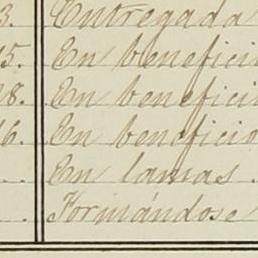 3. Entregada
15. En benefici
18. En benefici
16. En beneficio
. En lamas .
. Formándose